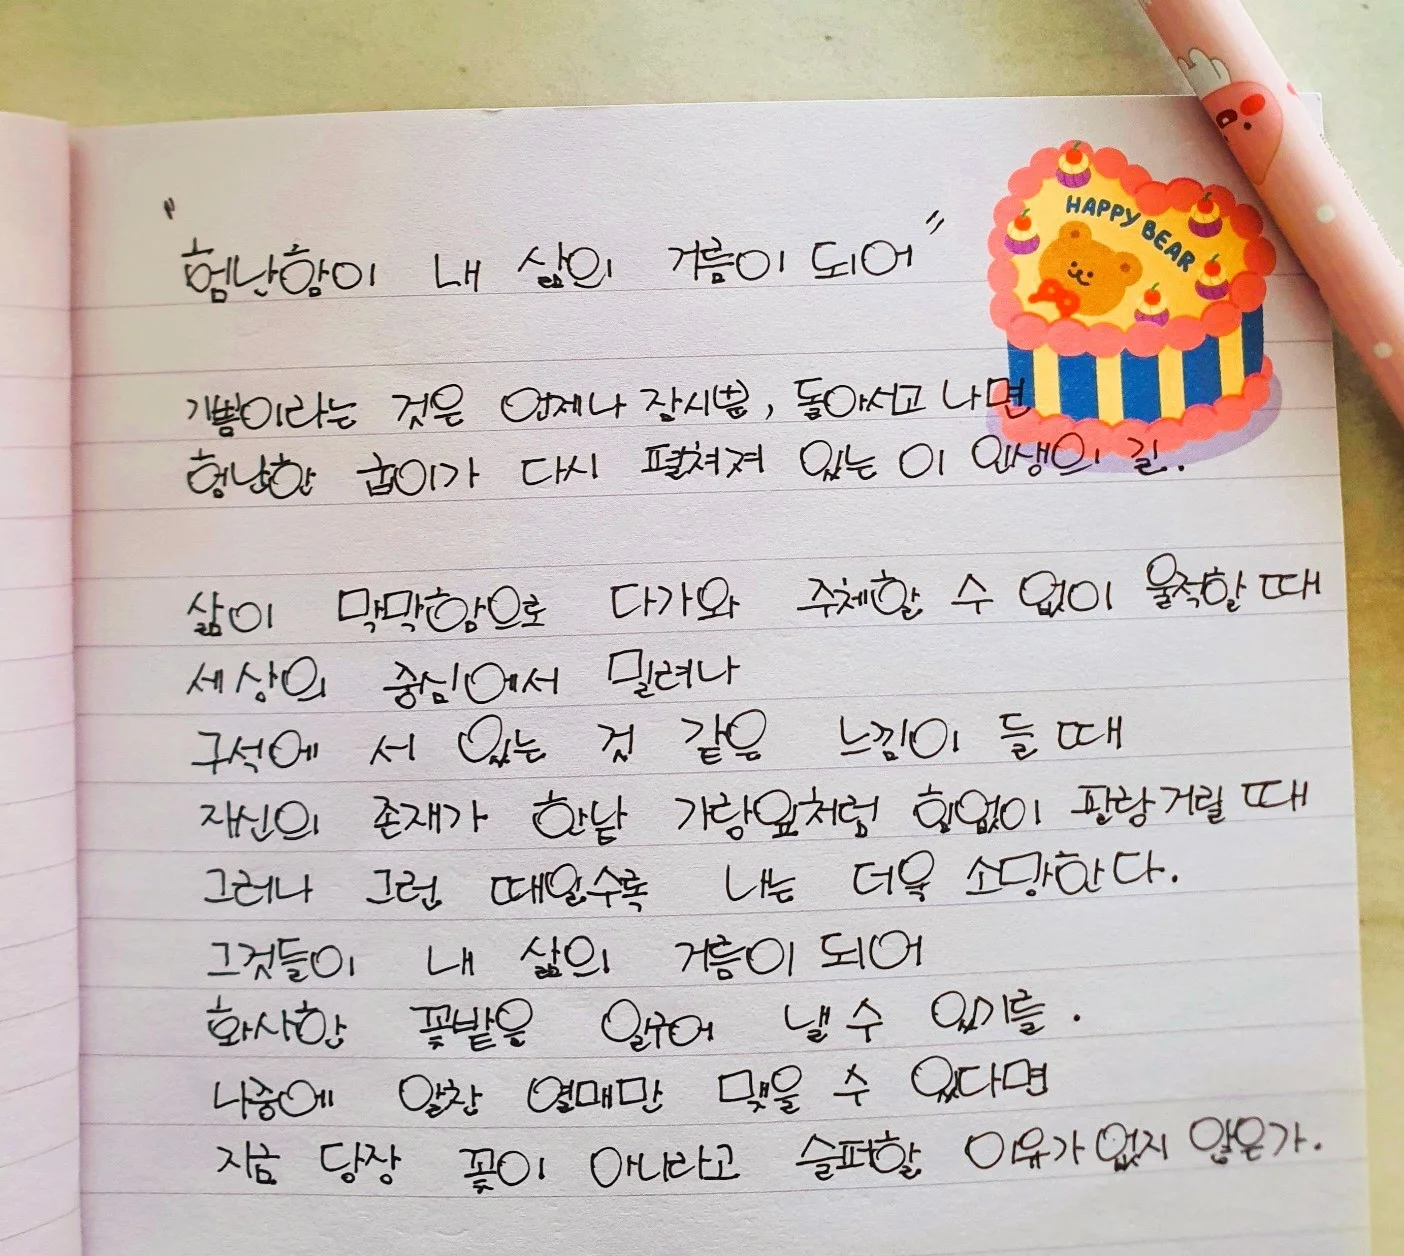 "험난함이 내 삶의 거름이 되어"
HAPPY BEAR
기쁨이라는 것은 언제나 잠시뿐, 돌아서고 나면
험난한 굽이가 다시 펼쳐져 있는 이 인생의 길.
삶이 막막함으로 다가와 주체할 수 없이 울적할 때
세상의 중심에서 밀려나
구석에 서 있는 것 같은 느낌이 들 때
자신의 존재가 한낱 가랑잎처럼 힘없이 팔랑거릴 때
그러나 그런 때일수록 나는 더욱 소망한다.
그것들이 내 삶의 거름이 되어
화사한 꽃밭을 일구어 낼 수 있기를.
나중에 알찬 열매만 맺을 수 있다면
지금 당장 꽃이 아니라고 슬퍼할 이유가 없지 않은가.